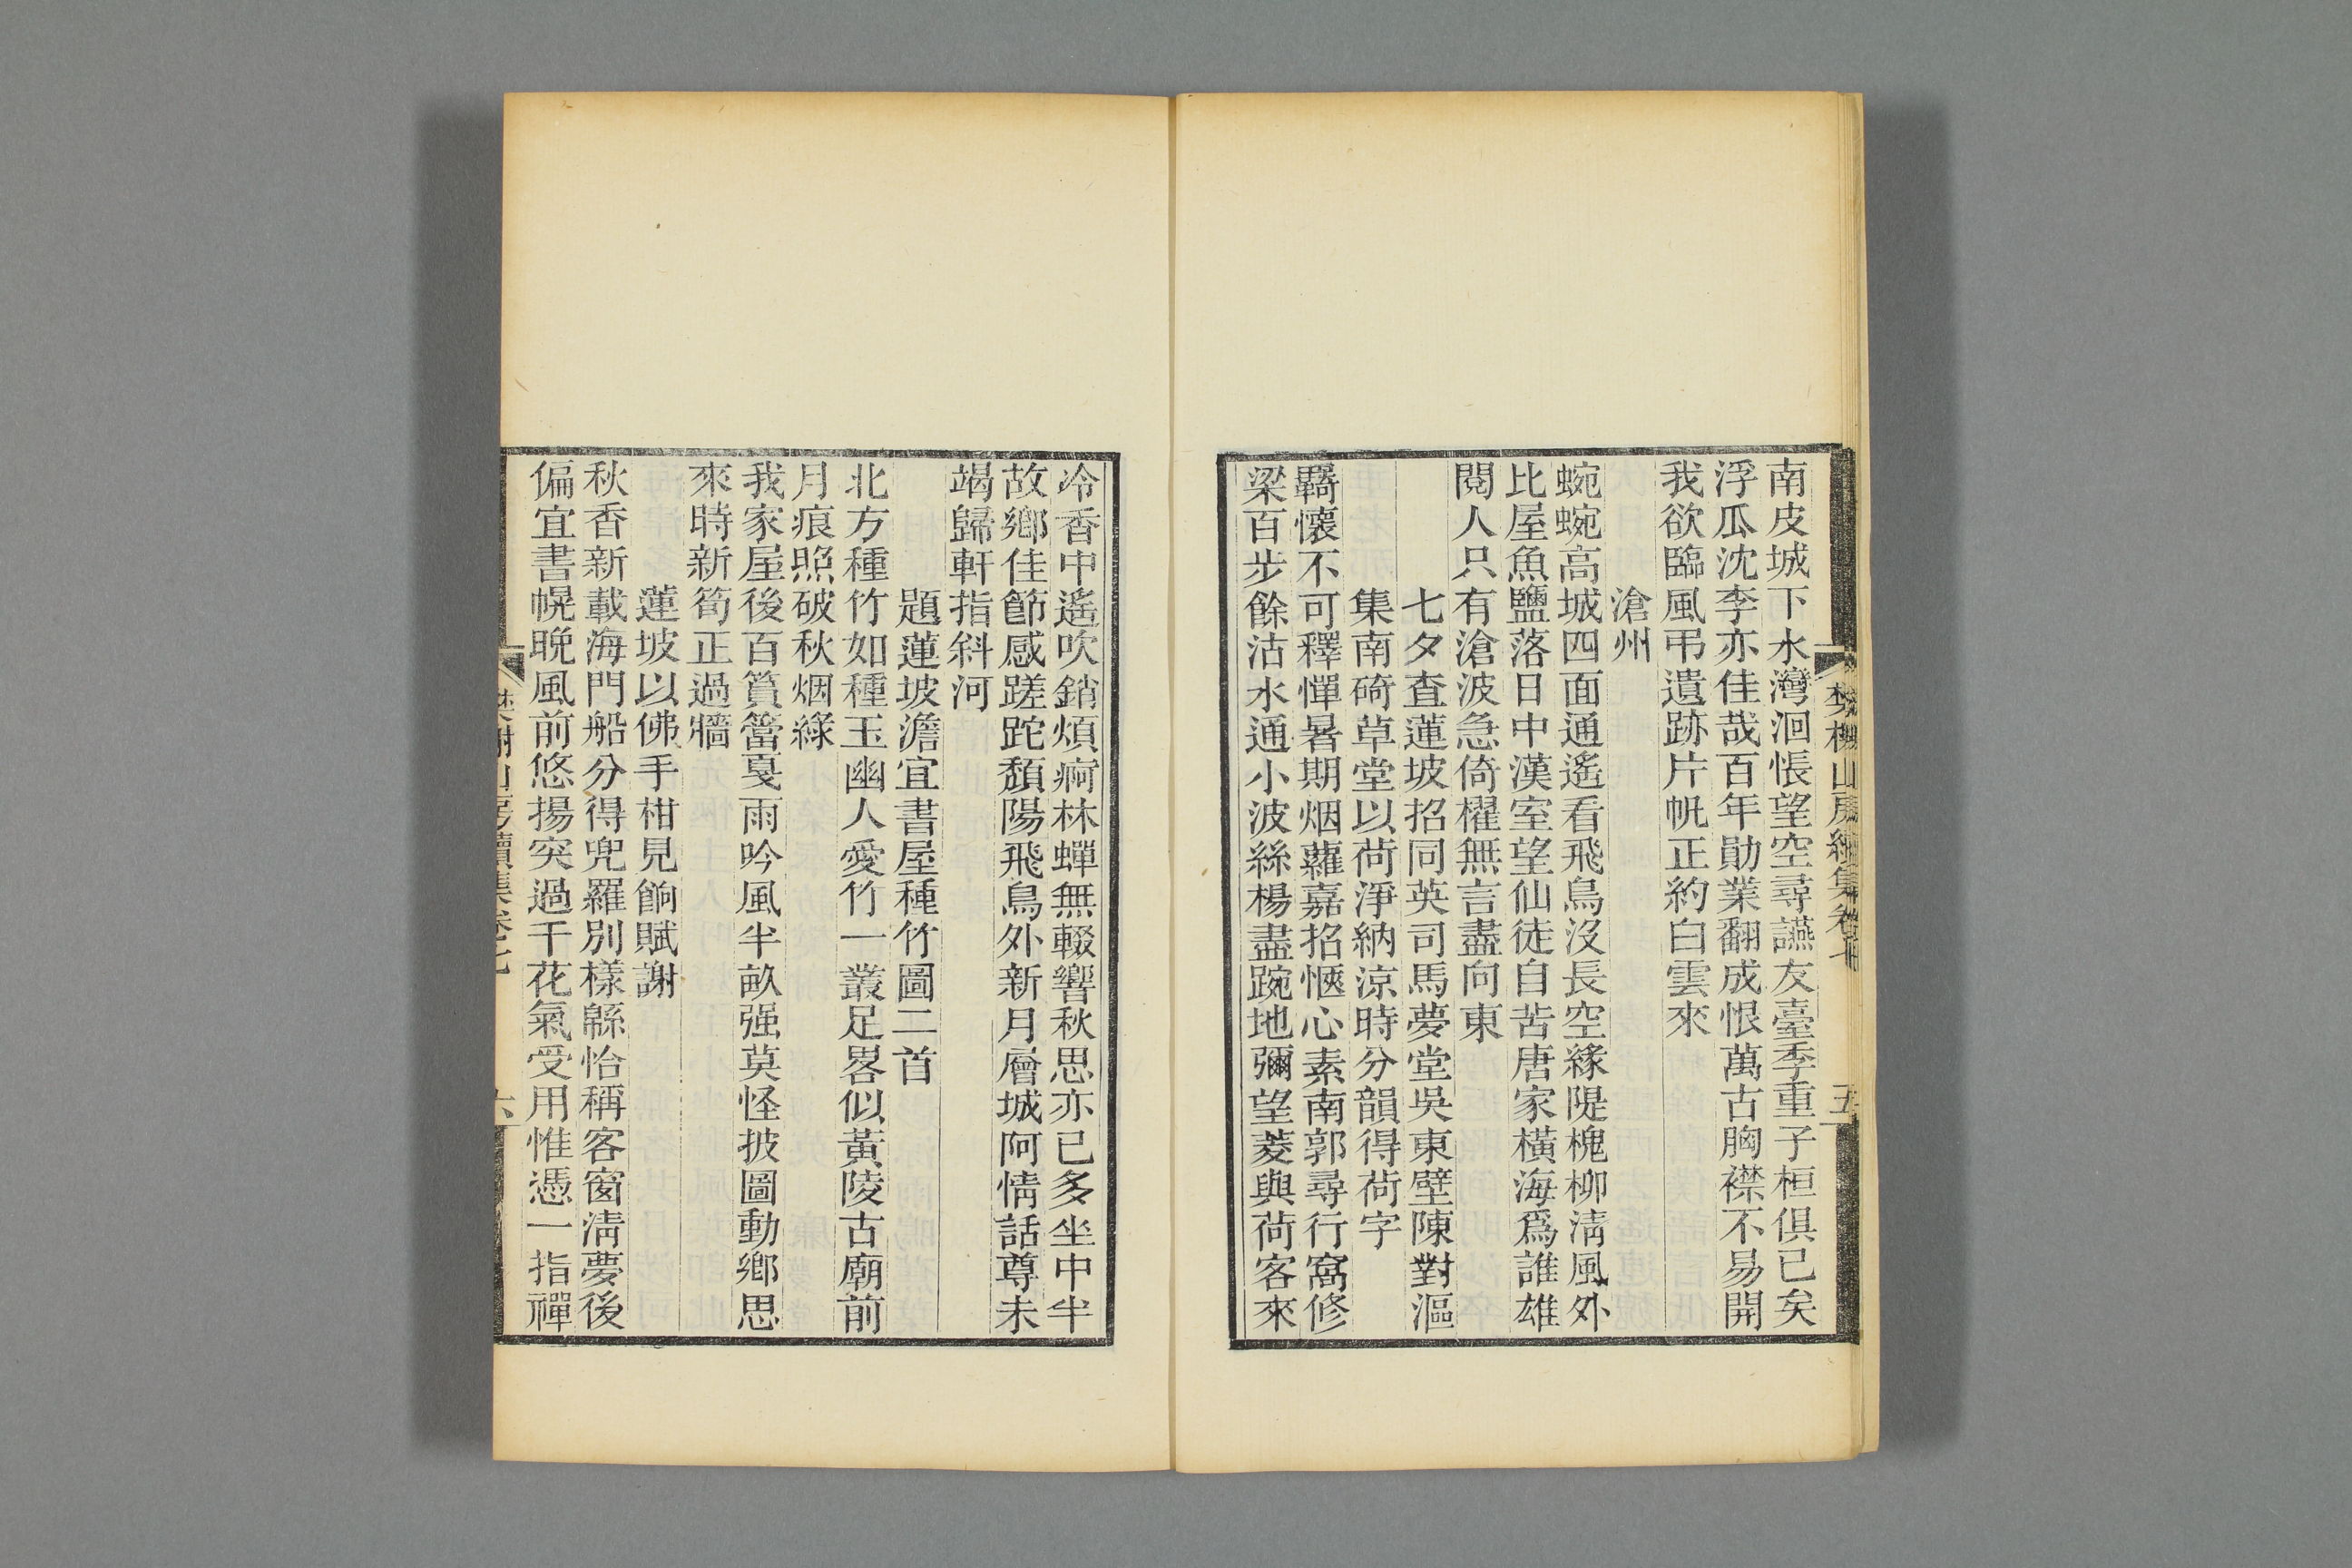 南皮城下水灣洄悵望空尋讌友臺季重子桓俱已矣
浮瓜沈李亦佳哉百年勛業翻成恨萬古胸襟不易開
我欲臨風弔遺跡片帆正約白雲來
滄州
蜿蜿高城四面通遙看飛鳥沒長空緣隄槐柳淸風外
比屋魚鹽落日中漢室望仙徒自苦唐家橫海爲誰雄
閱人只有滄波急倚櫂無言盡向東
七夕查蓮坡招同英司馬夢堂吳東壁陳對漚
集南碕草堂以荷淨納涼時分韻得荷字
羇懷不可釋憚暑期烟蘿嘉招愜心素南郭尋行窩修
梁百步餘沽水通小波絲楊盡踠地彌望菱與荷客來
冷香中遙吹銷煩痾林蟬無輟響秋思亦已多坐中半
故鄉佳節感蹉跎頽陽飛鳥外新月層城阿情話尊未
竭歸軒指斜河
題蓮坡澹宜書屋種竹圖二首
北方種竹如種玉幽人愛竹一叢足畧似黃陵古廟前
月痕照破秋烟綠
我家屋後百篔簹戛雨吟風半畝强莫怪披圖動鄉思
來時新筍正過牆
蓮坡以佛手柑見餉賦謝
秋香新載海門船分得兜羅別樣緜恰稱客窗淸夢後
偏宜書幌晚風前悠揚突過千花氣受用惟憑一指禪